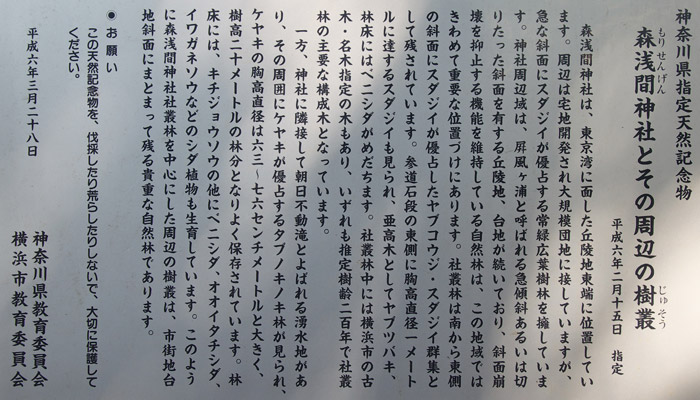 神奈川県指定天然記念物
もり せんげん じゅそう
森浅間神社とその周辺の樹叢
平成六年二月十五日 指定
森浅間神社は、東京湾に面した丘陵地東端に位置してい
ます。周辺は宅地開発され大規模団地に接していますが、
急な斜面にスダジイが優占する常緑広葉樹林を擁していま
す。神社周辺域は、屏風ヶ浦と呼ばれる急傾斜あるいは切
りたった斜面を有する丘陵地、台地が続いており、斜面崩
壊を抑止する機能を維持している自然林は、この地域では
きわめて重要な位置づけにあります。社叢林は南から東側
の斜面にスダジイが優占したヤブコウジ・スダジイ群集と
して残されています。参道石段の東側に胸高直径一メート
ルに達するスダジイも見られ、亜高木としてヤブツバキ、
林床にはベニシダがめだちます。社叢林中には横浜市の古
木・名木指定の木もあり、いずれも推定樹齢二百年で社叢
林の主要な構成木となっています。
一方、神社に隣接して朝日不動滝とよばれる湧水地があ
り、その周囲にケヤキが優占するタブノキノキ林が見られ、
ケヤキの胸高直径は六三～七六センチメートルと大きく、
樹高二十メートルの林分となりよく保存されています。林
床には、キチジョウソウの他にベニシダ、オオイタチシダ、
イワガネソウなどのシダ植物も生育しています。このよう
に森浅間神社社叢林を中心にした周辺の樹叢は、市街地台
地斜面にまとまって残る貴重な自然林であります。
●お願い
この天然記念物を、伐採したり荒らしたりしないで、大切に保護して
ください。
平成六年三月二十八日
神奈川県教育委員会
横浜市教育委員会